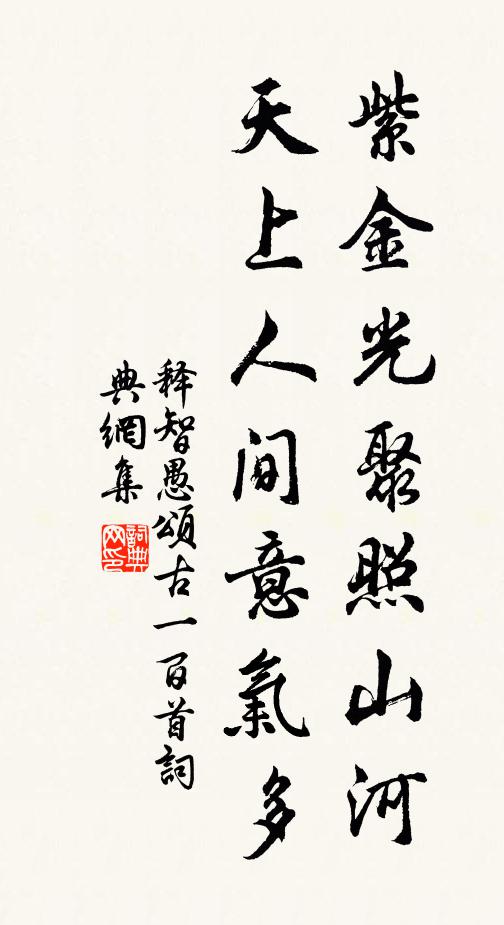 紫金光聚照山河
天上人间意氣多
释智愚頌古一百首詞
典網集
詞典網印